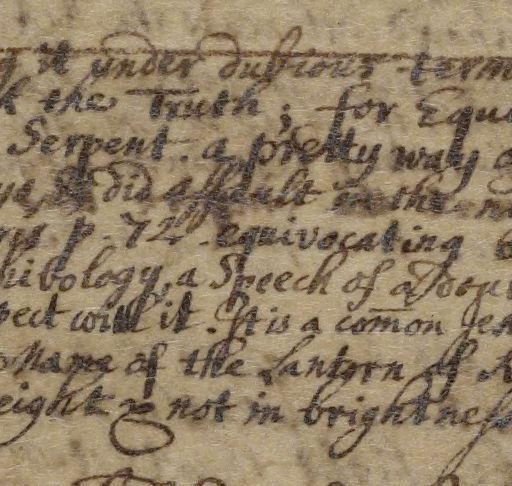 it under dubious term
the Truth; for Equ
Serpent. a pretty way
did assault
p. 72. equivocating
hibology, a Speech of a dou
pect with it. It is a com̄on
Name of the Lantern of
eight & not in brightness